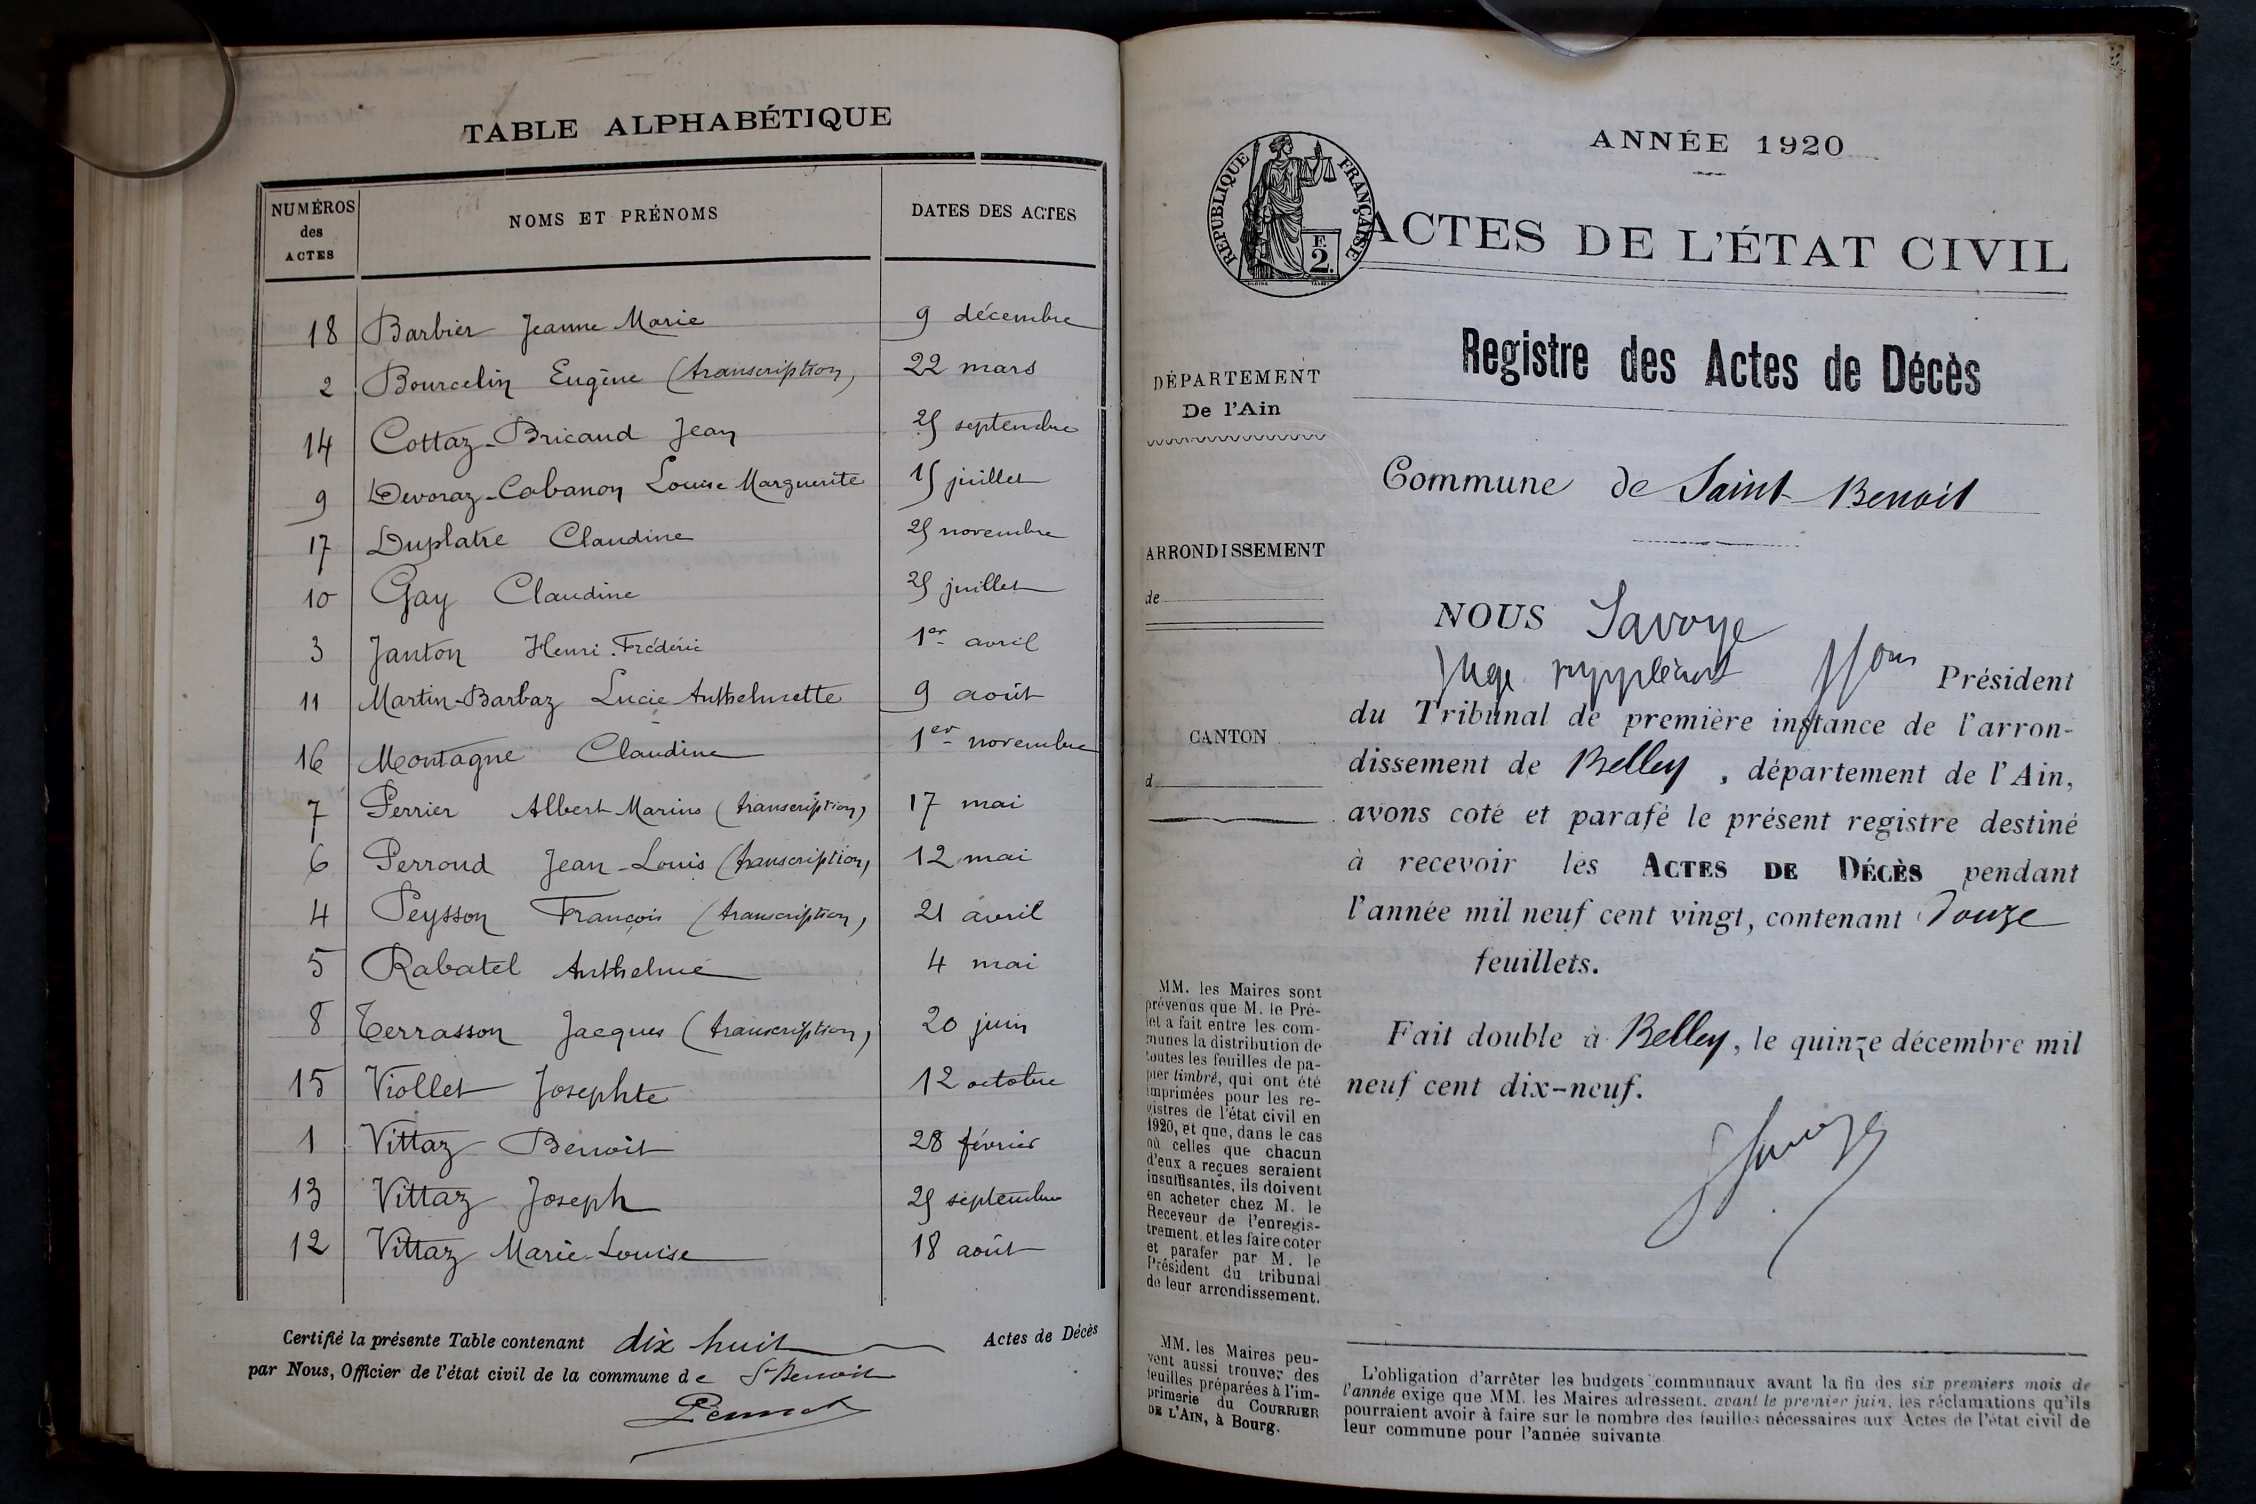 TABLE ALPHABÉTIQUE
NUMÉROS des ACTES
NOMS ET PRÉNOMS
DATES DES ACTES
18 Barbier Jeanne Marie 9 décembre
2 Bourcelin Eugène (transcription) 22 mars
14 Cottaz-Bricaud Jean 25 septembre
9 Devoraz-Cabanon Louise Marguerite 15 juillet
17 Duplatre Claudine 25 novembre
10 Gay Claudine 25 juillet
3 Janton Henri-Frédéric 1er avril
11 Martin-Barbaz Lucie Anthelmette 9 août
16 Montagne Claudine 1er novembre
7 Perrier Albert Marius (transcription) 17 mai
6 Perroud Jean-Louis (transcription) 12 mai
4 Peysson François (transcription) 21 avril
5 Rabatel Anthelme 4 mai
8 Terrasson Jacques (transcription) 20 juin
15 Viollet Josephte 12 octobre
1 Vittaz Benoît 28 février
13 Vittaz Joseph 25 septembre
12 Vittaz Marie-Louise 18 août
Certifié la présente Table contenant dix huit Actes de Décès
par Nous, Officier de l'état civil de la commune de St Benoit
ANNÉE 1920
RÉPUBLIQUE FRANÇAISE
F. 2.
ACTES DE L'ÉTAT CIVIL
Registre des Actes de Décès
DÉPARTEMENT
De l'Ain
Commune de Saint-Benoit
ARRONDISSEMENT
de
CANTON
d
NOUS Savoye
Juge suppléant Président
du Tribunal de première instance de l'arron-
dissement de Belley, département de l'Ain,
avons coté et parafé le présent registre destiné
à recevoir les ACTES DE DÉCÈS pendant
l'année mil neuf cent vingt, contenant Douze
feuillets.
Fait double à Belley, le quinze décembre mil
neuf cent dix-neuf.
MM. les Maires sont
prévenus que M. le Pré-
fet a fait entre les com-
munes la distribution de
toutes les feuilles de pa-
pier timbré, qui ont été
imprimées pour les re-
gistres de l'état civil en
1920, et que, dans le cas
où celles que chacun
d'eux a reçues seraient
insuffisantes, ils doivent
en acheter chez M. le
Receveur de l'enregis-
trement, et les faire coter
et parafer par M. le
Président du tribunal
de leur arrondissement.
MM. les Maires peu-
vent aussi trouver des
feuilles préparées à l'im-
primerie du COURRIER
DE L'AIN, à Bourg.
L'obligation d'arrêter les budgets communaux avant la fin des six premiers mois de
l'année exige que MM. les Maires adressent, avant le premier juin, les réclamations qu'ils
pourraient avoir à faire sur le nombre des feuilles nécessaires aux Actes de l'état civil de
leur commune pour l'année suivante